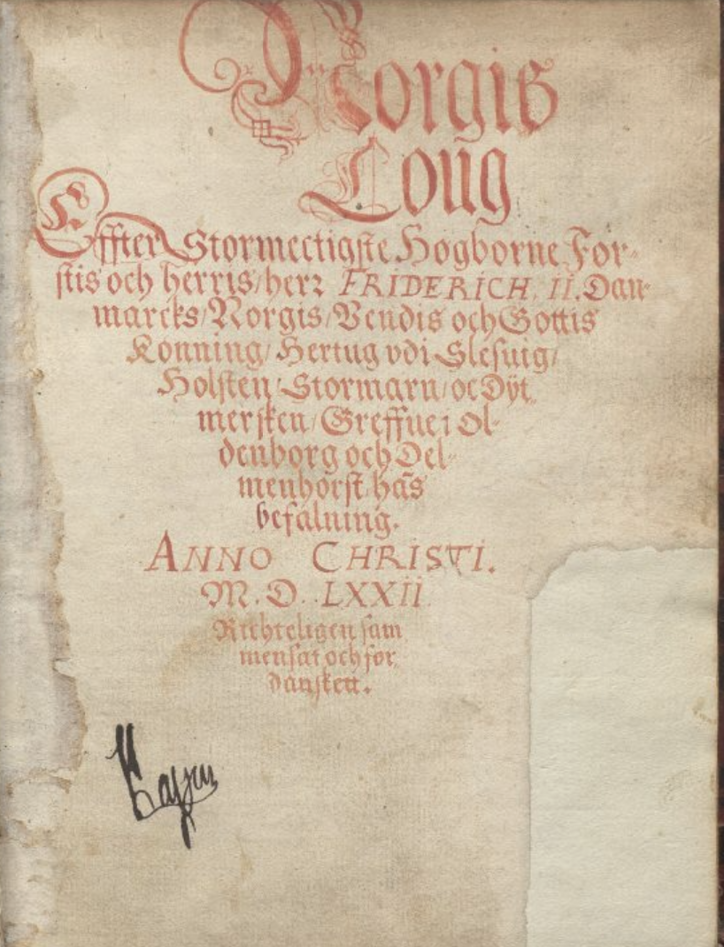 Norgis
Loug
Effter Stormectigste Høgborne For-
stis och herris/ herr FRIDERICH, II. Dan-
marcks/ Norgis/ Vendis och Gottis
Konning/ Hertug vdi Slesuig/
Holsten/ Stormarn/ oc Dÿt
mersken/ Greffue i Ol-
denborg och Del-
menhorst/ hãs
befalning.
ANNO CHRISTI.
M.D.LXXII
Richteligen sam
mensat och for
dansket.